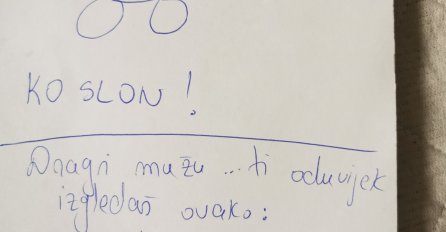 KO SLON!
Dragi mužu... ti oduvijek
izgledaš ovako: